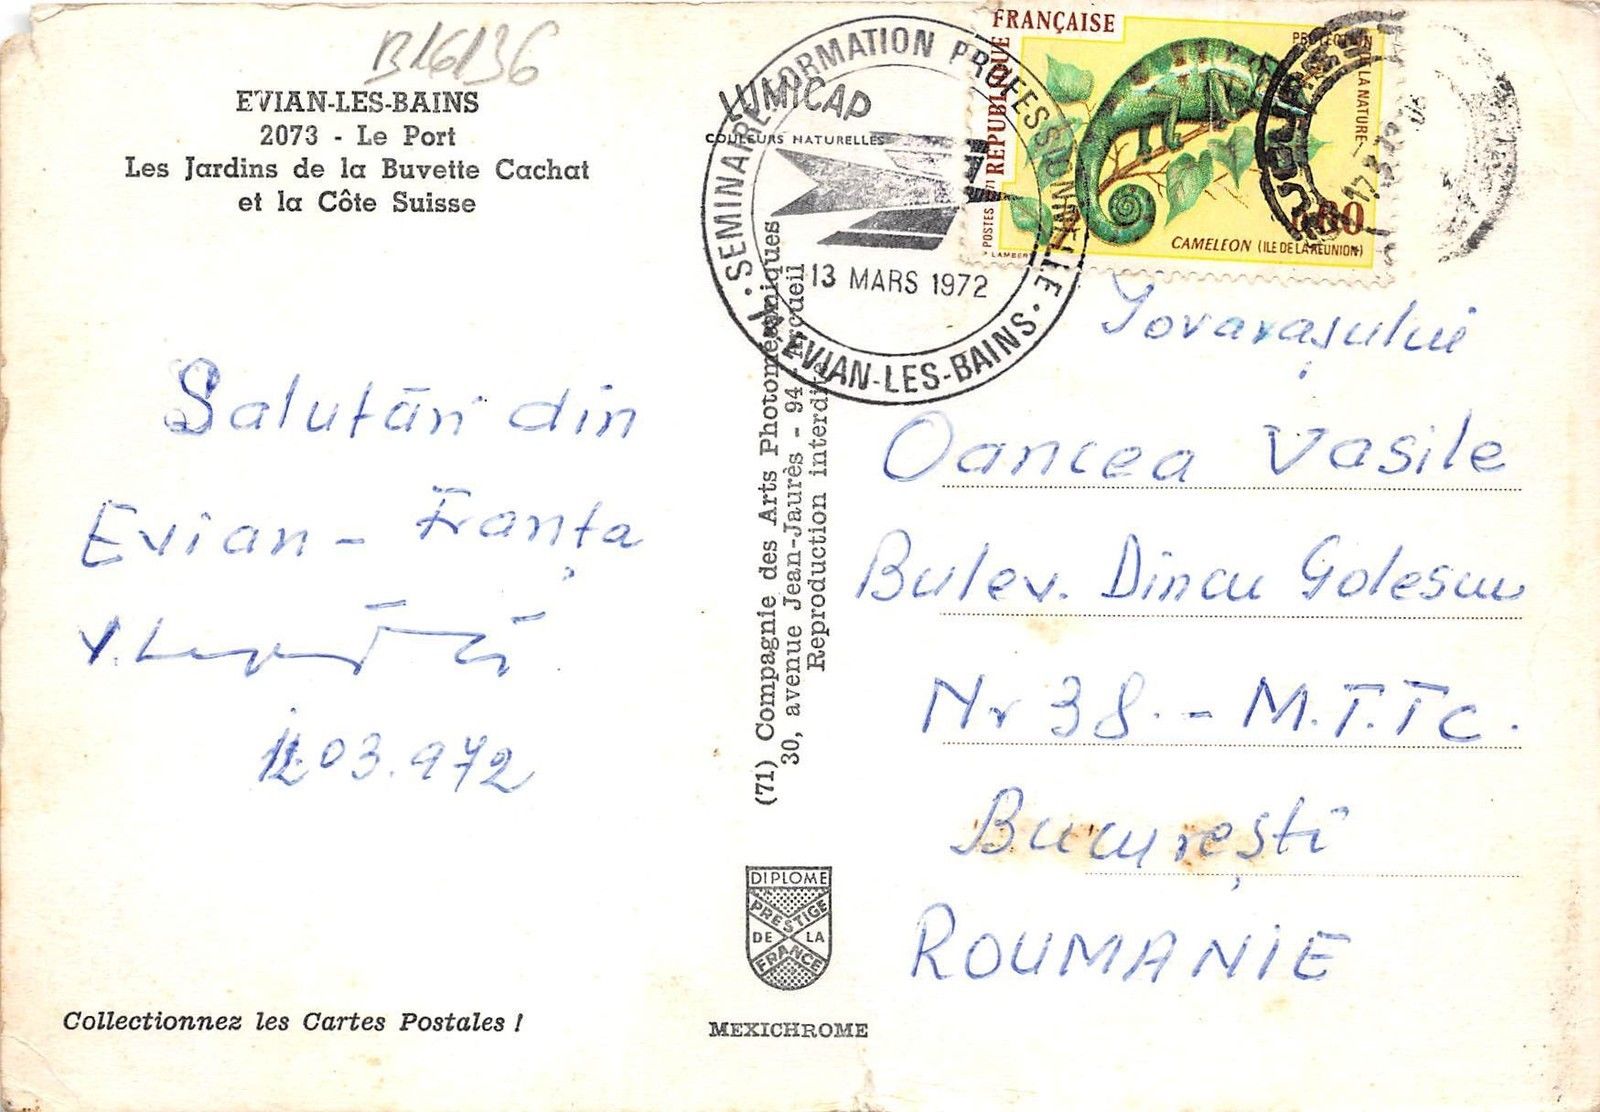 B16136
EVIAN-LES-BAINS
2073 - Le Port
Les Jardins de la Buvette Cachat
et la Côte Suisse
Salutări din
Evian - Franța
03.972
Collectionnez les Cartes Postales !
LUMICAP
COULEURS NATURELLES
SEMINAIRE FORMATION PROFESSIONNELLE
EVIAN-LES-BAINS
13 MARS 1972
(71) Compagnie des Arts Photomécaniques
30, avenue Jean-Jaurès - 94 Arcueil
Reproduction interdite
DIPLOME
PRESTIGE
DE LA
FRANCE
MEXICHROME
REPUBLIQUE FRANÇAISE
PROTECTION DE LA NATURE
POSTES 1971
0,80
CAMELEON (ILE DE LA REUNION)
Tovarașului
Oancea Vasile
Bulev. Dincu Golescu
Nr 38. - M.T.Tc.
București
ROUMANIE